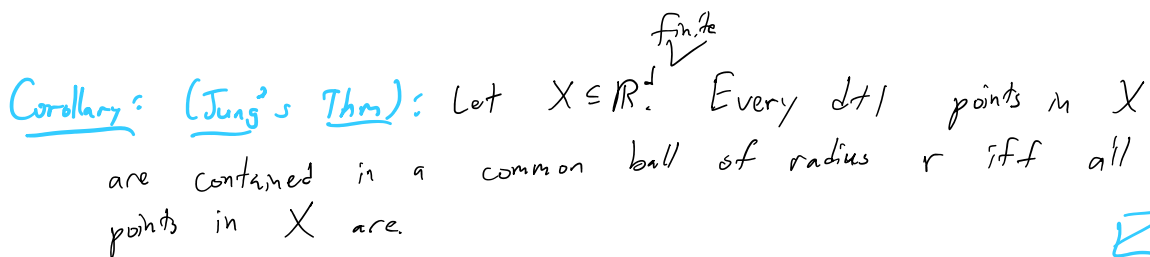 finite
Corollary: (Jung's Thm): Let X ⊆ ℝᵈ. Every d+1 points in X
are contained in a common ball of radius r iff all
points in X are.